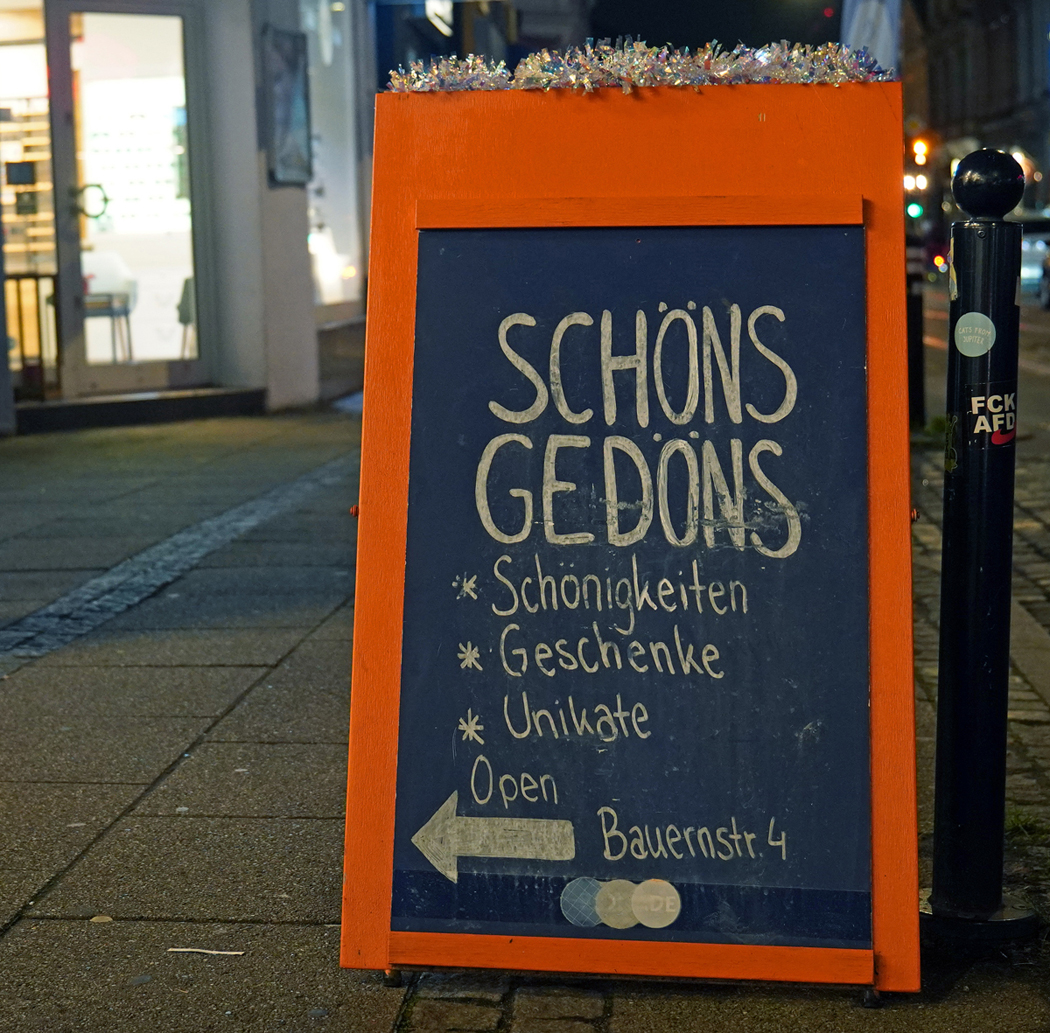 SCHÖNS
GEDÖNS
* Schönigkeiten
* Geschenke
* Unikate
Open
Bauernstr. 4
DE
FCK
AFD